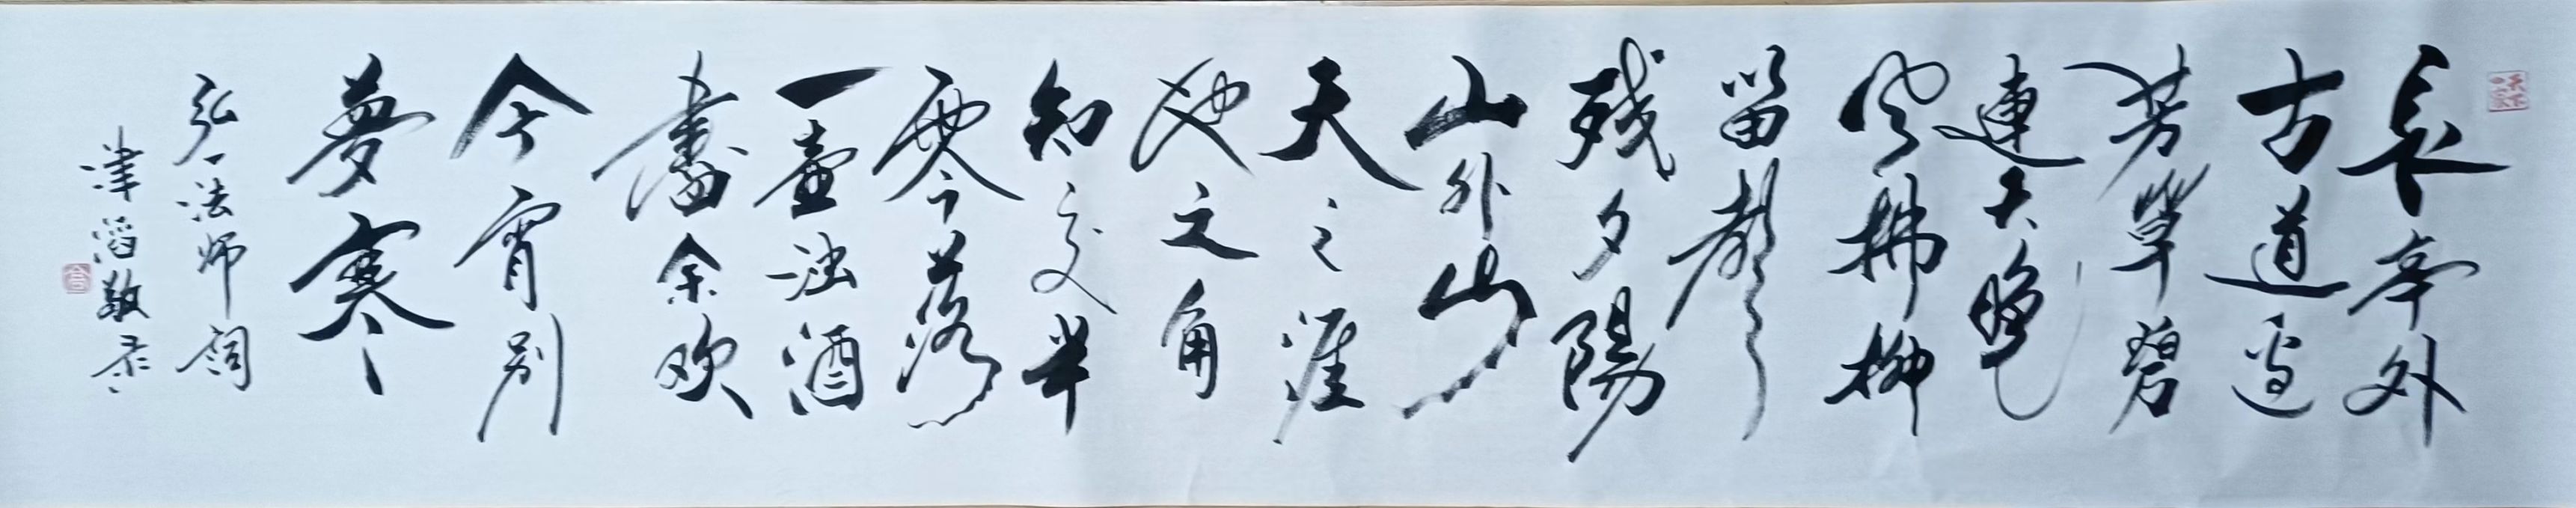 長亭外
古道邊
芳草碧
連天晚
風拂柳
笛聲
残夕陽
山外山
天之涯
地之角
知交半
零落
一壺浊酒
盡余欢
今宵别
夢寒
弘一法师詞
津滔敬录